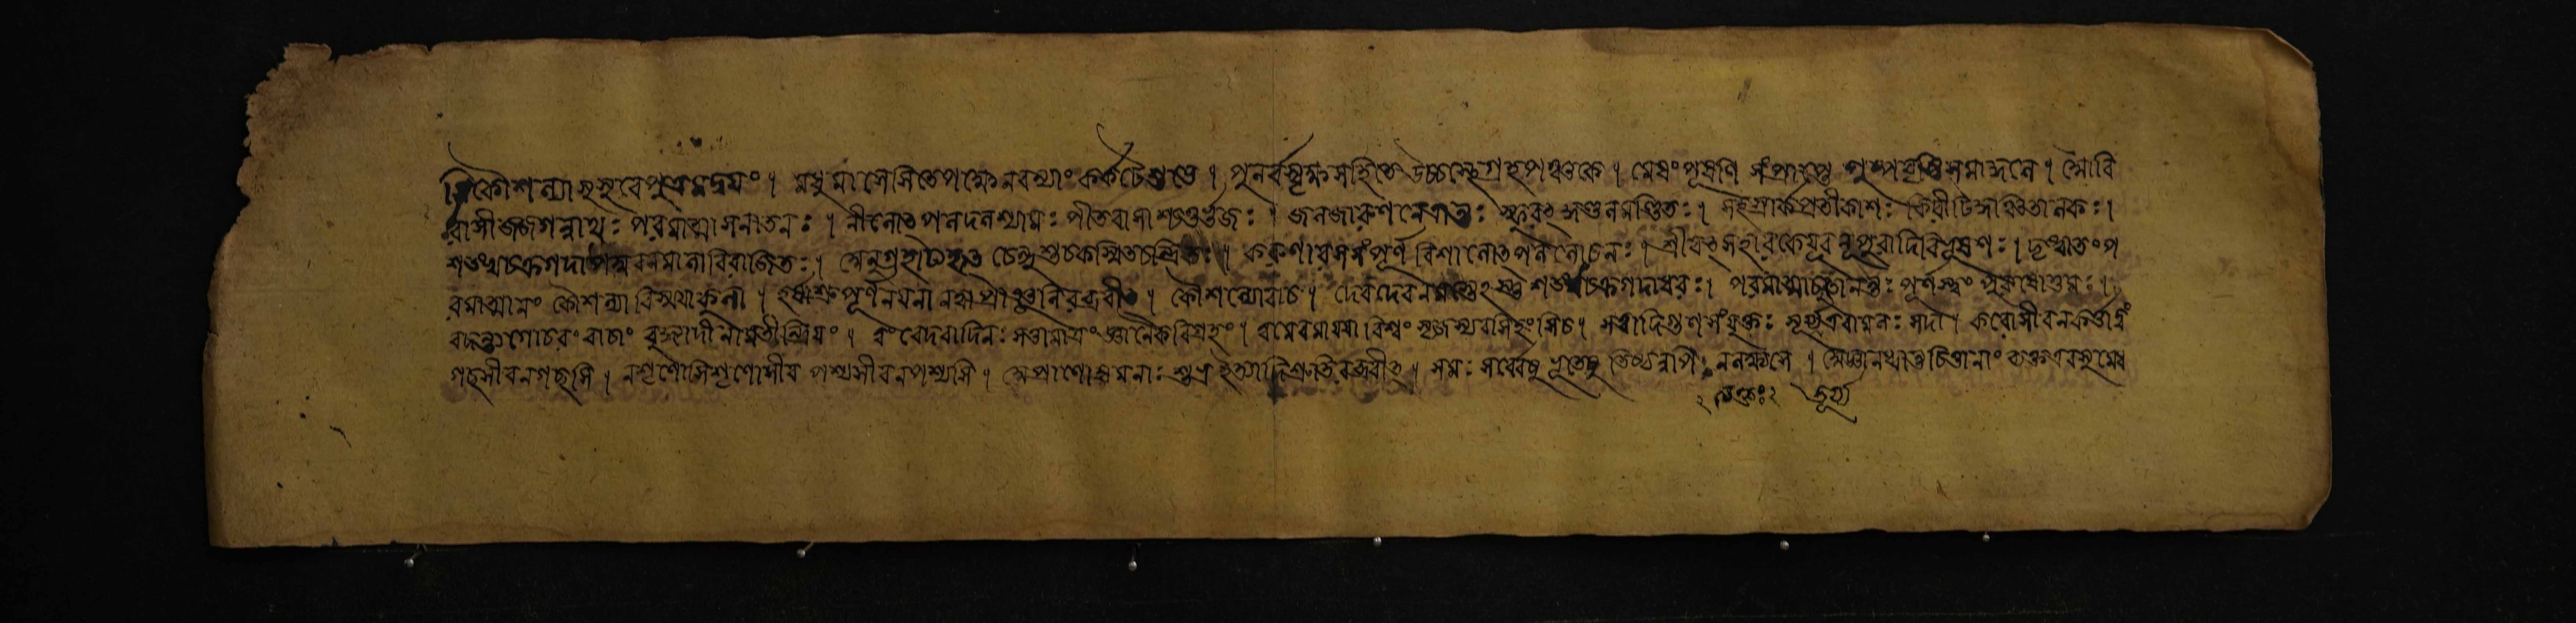 সিকৌশল্যাসুসুবেপুত্রমদ্রয়ং। মধুমাসেসিতেপক্ষেনবম্যাং কর্কটেশুভে। পুনর্বস্বৃক্ষসহিতেউচ্চস্থেগ্রহপঞ্চকে। মেষংপূষণি সংপ্রাপ্তে পুষ্পবৃষ্টিসমাকুলে। আবি
রাসীজ্জগন্নাথঃ পরমাত্মাসনাতনঃ। নীলোৎপলদলশ্যামঃ পীতবাসাশ্চতুর্ভুজঃ। জলজারুণনেত্রান্তঃ স্ফুরৎকুণ্ডলমণ্ডিতঃ। সহস্রার্কপ্রতীকাশঃ কিরীটিকুঞ্চিতালকঃ।
শঙ্খচক্রগদাপদ্মবনমালাবিরাজিতঃ। অনুগ্রহাখ্যহৃৎস্থেন্দুশুচকস্মিতচন্দ্রিকঃ। করুণারসসংপূর্ণ বিশালোৎপললোচনঃ। শ্রীবৎসহারকেয়ূরনূপুরাদিবিভূষণঃ। দৃষ্ট্বাতংপ
রমাত্মানং কৌশল্যাবিস্ময়াকুলা। হর্ষাশ্রুপূর্ণনয়নানত্বাপ্রাঞ্জলিরব্রবীৎ। কৌশল্যোবাচ। দেবদেবনমস্তেহস্তু শঙ্খচক্রগদাধরঃ। পরমাত্মাচ্যুতোনন্তঃ পূর্ণস্ত্বং পুরুষোত্তমঃ।
বদন্ত্যগোচরং বাচাং বুদ্ধ্যাদীনামতীন্দ্রিয়ং। ত্বাংবেদবাদিনঃ সত্তামাত্রং জ্ঞানৈকবিগ্রহং। ত্বমেবমায়য়াবিশ্বং সৃজস্যবসিহংসিচ। সত্বাদিগুণসংযুক্তঃ সূর্য্যএবামলঃ সদা। করোসীবনকর্ত্তাত্বং
গচ্ছসীবনগচ্ছসি। নশৃণোসিশৃণোসীব পশ্যসীবনপশ্যসি। অপ্রাণোহ্যমনাঃ শুভ্র ইত্যাদিশ্রুতিরব্রবীৎ। সমঃ সর্ব্বেষু ভূতেষু তিষ্ঠন্নপি নলক্ষ্যসে। অজ্ঞানধ্বান্তচিত্তানাং ব্যক্তএবসুমেধ